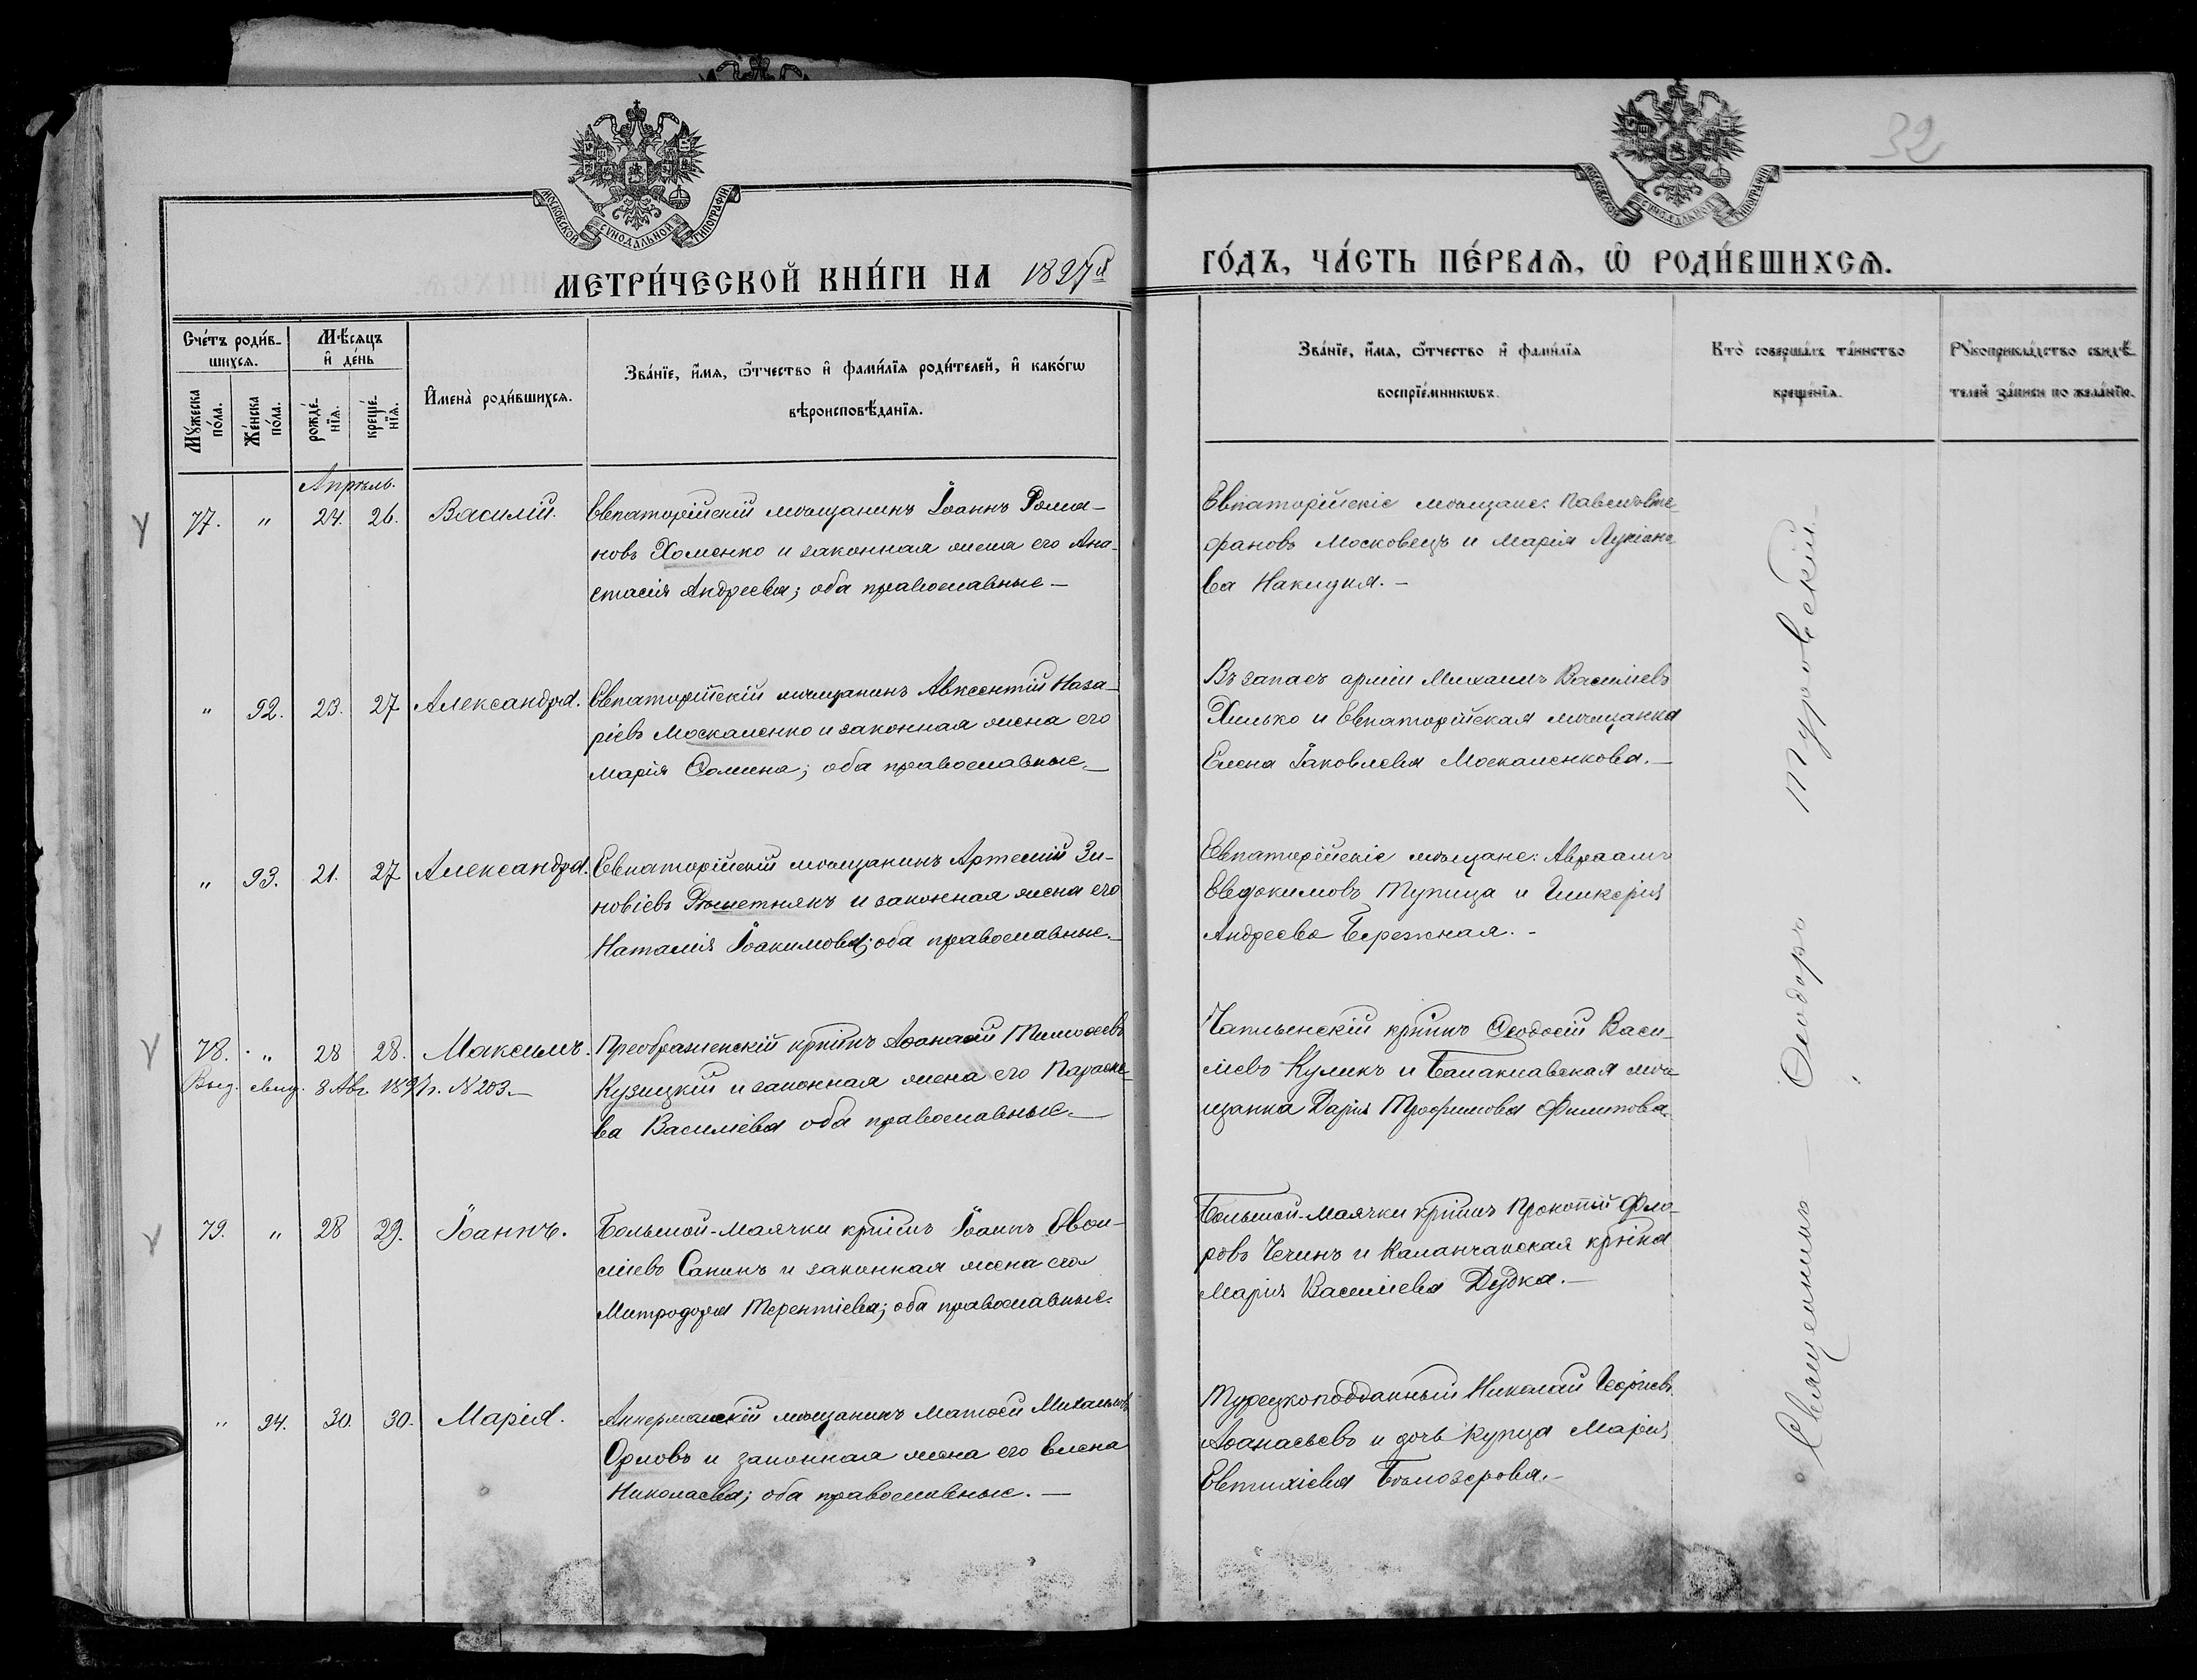 32
МОСКОВСКОЙ СУНОДАЛЬНОЙ ТИПОГРАФІИ
МОСКОВСКОЙ СУНОДАЛЬНОЙ ТИПОГРАФІИ
МЕТРИ́ЧЕСКОЙ КНИ́ГИ НА 1897й
ГО́ДЪ, ЧА́СТЬ ПЕ́РВАЯ, Ѡ РОДИ́ВШИХСЯ.
Сче́тъ роди́в-
шихся.
Му́жеска по́ла.
Же́нска по́ла.
Мѣ́сяцъ
и҆ де́нь
рожде́-
нїя.
креще́-
нїя.
И҆мена̀ роди́вшихся.
Зва́нїе, и҆́мя, ѻ҆́тчество и҆ фами́лїя роди́телей, и҆ како́гѡ
вѣроисповѣ́данїя.
Зва́нїе, и҆́мя, ѻ҆́тчество и҆ фами́лїя
воспрїе́мникѡвъ.
Кто̀ соверша́лъ та́инство
креще́нїя.
Рꙋкоприкла́дство свидѣ́-
телей за́писи по жела́нїю.
Апрѣль.
77. " 24. 26. Василій. Евпаторійскій мѣщанинъ Іоаннъ Рома-
новъ Хоменко и законная жена его Ана-
стасія Андреева; оба православные —
Евпаторійскіе мѣщане: Павелъ Сте-
фановъ Московецъ и Марія Лукіано
ва
" 92. 23. 27 Александра. Евпаторійскій мѣщанинъ Авксентій Наза-
ріевъ Москаленко и законная жена его
Марія Ѳомина; оба православные —
Въ запасѣ арміи Михаилъ Василіевъ
Хилько и Евпаторійская мѣщанка
Елена Іаковлева Москаленкова. —
" 93. 21. 27 Александра. Евпаторійскій мѣщанинъ Артемій Зи-
новіевъ Рѣшетнякъ и законная жена его
Наталія Іоакимова; оба православные. —
Евпаторійскіе мѣщане: Авраамъ
Евдокимовъ Тупица и Гликерія
Андреева Бережная. -
78. " 28 28. Максимъ. Преображенскій кр-нинъ Аѳанасій Тимоѳеевъ
Выд. свид. 8 Авг. 1897 г. N 203. —
Кузицкій и законная жена его Параске-
ва Василіева оба православные. —
Чаплынскій кр-нинъ Ѳеодосій Васи-
ліевъ Куликъ и Балаклавская мѣ-
щанка Дарія Трофимова Филипова.
79. " 28 29. Іоаннъ. Большой-Маячки кр-нинъ Іоаннъ
Санинъ и законная жена его
Митродора Терентіева; оба православные.
Большой-Маячки кр-нинъ Прокопій Фло-
ровъ Чечинъ и Каланчакская кр-нка
Марія Василіева Дудка. —
" 94. 30. 30. Марія. Аккерманскій мѣщанинъ Матѳей Михаиловъ
Орловъ и законная жена его Елена
Николаева; оба православные. —
Турецкоподданный Николай Георгіевъ
Аѳанасьевъ и дочь купца Марія
Евтихіева Бѣлозерова. —
Священникъ — Ѳеодоръ Туровскій